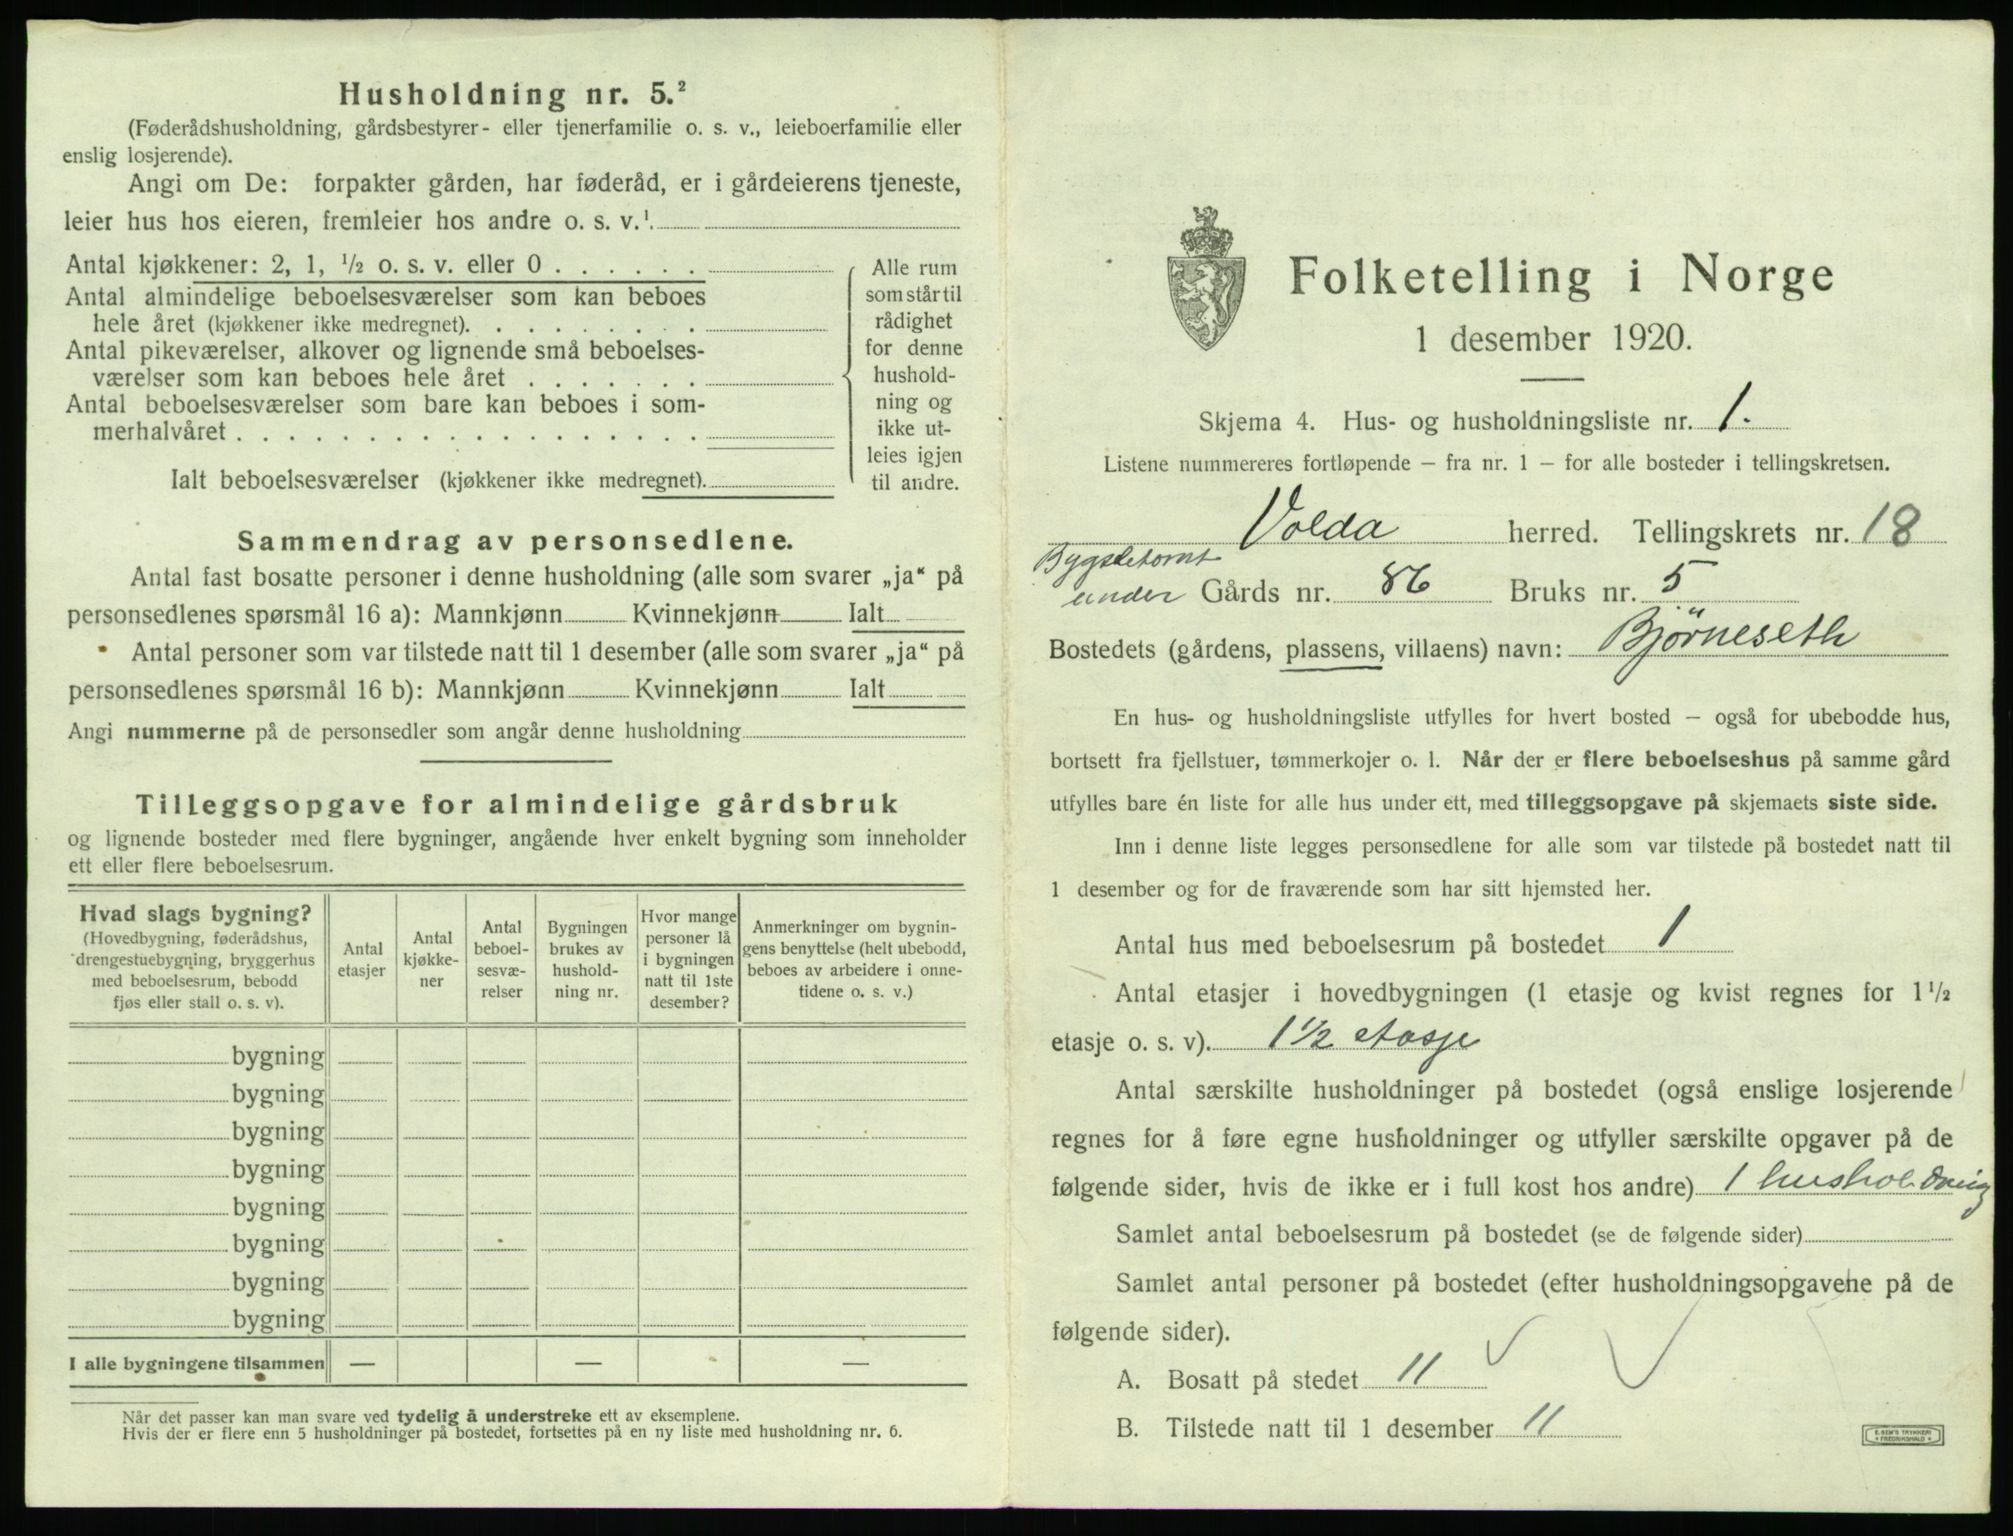 Husholdning nr. 5.²
(Føderådshusholdning, gårdsbestyrer- eller tjenerfamilie o. s. v., leieboerfamilie eller
enslig losjerende).
Angi om De: forpakter gården, har føderåd, er i gårdeierens tjeneste,
leier hus hos eieren, fremleier hos andre o. s. v.¹
Antal kjøkkener: 2, 1, ½ o. s. v. eller 0 . . . . . .
Antal almindelige beboelsesværelser som kan beboes
hele året (kjøkkener ikke medregnet). . . . . . . . .
Antal pikeværelser, alkover og lignende små beboelses-
værelser som kan beboes hele året . . . . . . .
Antal beboelsesværelser som bare kan beboes i som-
merhalvåret . . . . . . . . . . . . . . . . . .
Ialt beboelsesværelser (kjøkkener ikke medregnet).
Alle rum
som står til
rådighet
for denne
hushold-
ning og
ikke ut-
leies igjen
til andre.
Sammendrag av personsedlene.
Antal fast bosatte personer i denne husholdning (alle som svarer „ja“ på
personsedlenes spørsmål 16 a): Mannkjønn Kvinnekjønn Ialt
Antal personer som var tilstede natt til 1 desember (alle som svarer „ja“ på
personsedlenes spørsmål 16 b): Mannkjønn Kvinnekjønn Ialt
Angi nummerne på de personsedler som angår denne husholdning
Tilleggsopgave for almindelige gårdsbruk
og lignende bosteder med flere bygninger, angående hver enkelt bygning som inneholder
ett eller flere beboelsesrum.
Hvad slags bygning?
(Hovedbygning, føderådshus,
drengestuebygning, bryggerhus
med beboelsesrum, bebodd
fjøs eller stall o. s. v).
Antal
etasjer
Antal
kjøkke-
ner
Antal
beboel-
sesvæ-
relser
Bygningen
brukes av
hushold-
ning nr.
Hvor mange
personer lå
i bygningen
natt til 1ste
desember?
Anmerkninger om bygnin-
gens benyttelse (helt ubebodd,
beboes av arbeidere i onne-
tidene o. s. v.)
bygning
bygning
bygning
bygning
bygning
bygning
bygning
bygning
I alle bygningene tilsammen — — —
Når det passer kan man svare ved tydelig å understreke ett av eksemplene.
Hvis der er flere enn 5 husholdninger på bostedet, fortsettes på en ny liste med husholdning nr. 6.
Folketelling i Norge
1 desember 1920.
Skjema 4. Hus- og husholdningsliste nr. 1.
Listene nummereres fortløpende – fra nr. 1 – for alle bosteder i tellingskretsen.
Volda herred. Tellingskrets nr. 18
Bygsletomt
under Gårds nr. 86 Bruks nr. 5
Bostedets (gårdens, plassens, villaens) navn: Bjørneseth
En hus- og husholdningsliste utfylles for hvert bosted – også for ubebodde hus,
bortsett fra fjellstuer, tømmerkojer o. l. Når der er flere beboelseshus på samme gård
utfylles bare én liste for alle hus under ett, med tilleggsopgave på skjemaets siste side.
Inn i denne liste legges personsedlene for alle som var tilstede på bostedet natt til
1 desember og for de fraværende som har sitt hjemsted her.
Antal hus med beboelsesrum på bostedet 1
Antal etasjer i hovedbygningen (1 etasje og kvist regnes for 1½
etasje o. s. v). 1½ etasje
Antal særskilte husholdninger på bostedet (også enslige losjerende
regnes for å føre egne husholdninger og utfyller særskilte opgaver på de
følgende sider, hvis de ikke er i full kost hos andre) 1 husholdning
Samlet antal beboelsesrum på bostedet (se de følgende sider)
Samlet antal personer på bostedet (efter husholdningsopgavene på de
følgende sider).
A. Bosatt på stedet 11
B. Tilstede natt til 1 desember 11
E. SEM'S TRYKKERI
FREDRIKSHALD